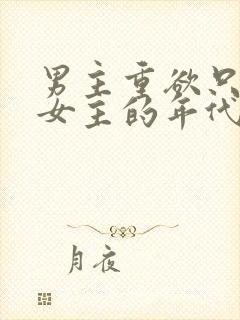 男主重欲只
女主的年代
月夜